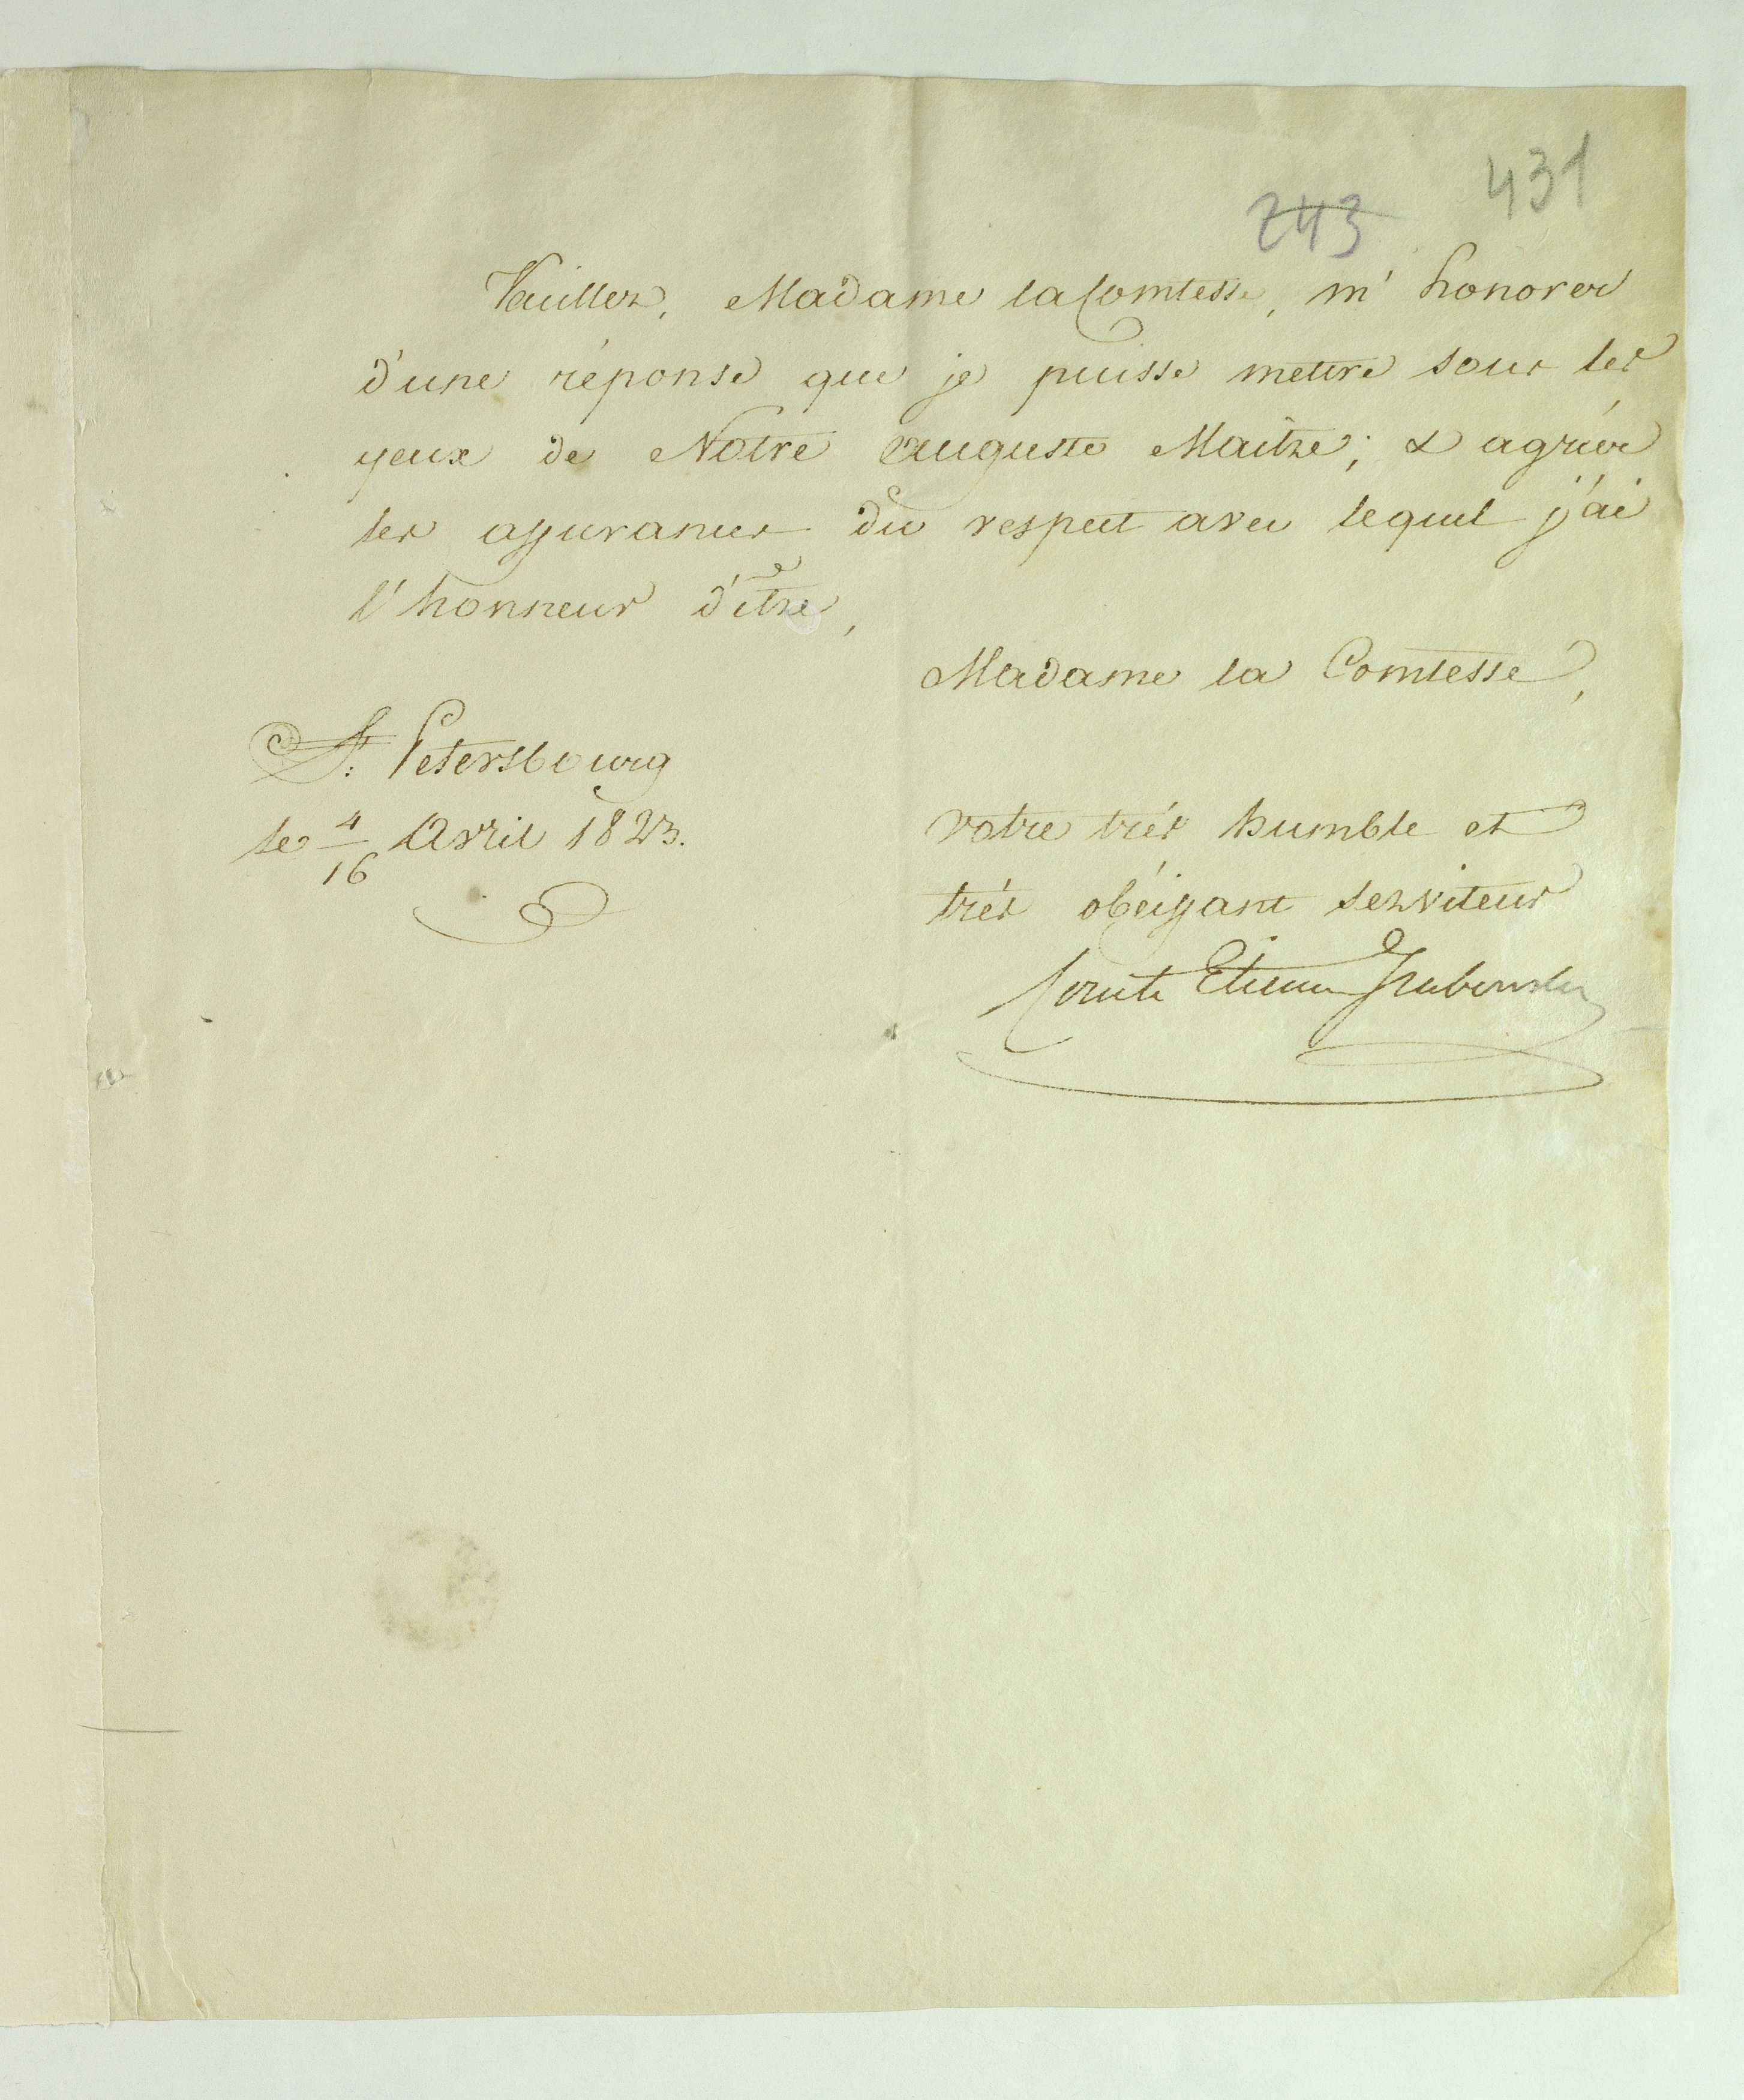 431
243
Veuillez, Madame la Comtesse, m'honorer
d'une réponse que je puisse mettre sous les
yeux de Notre auguste Maitre; & agréer
les assurances du respect avec lequel j'ai
l'honneur d'être,
Madame la Comtesse,
St: Petersbourg
le 4/16 Avril 1823.
votre très humble et
très obéissant serviteur
Comte Etienne Grabowski